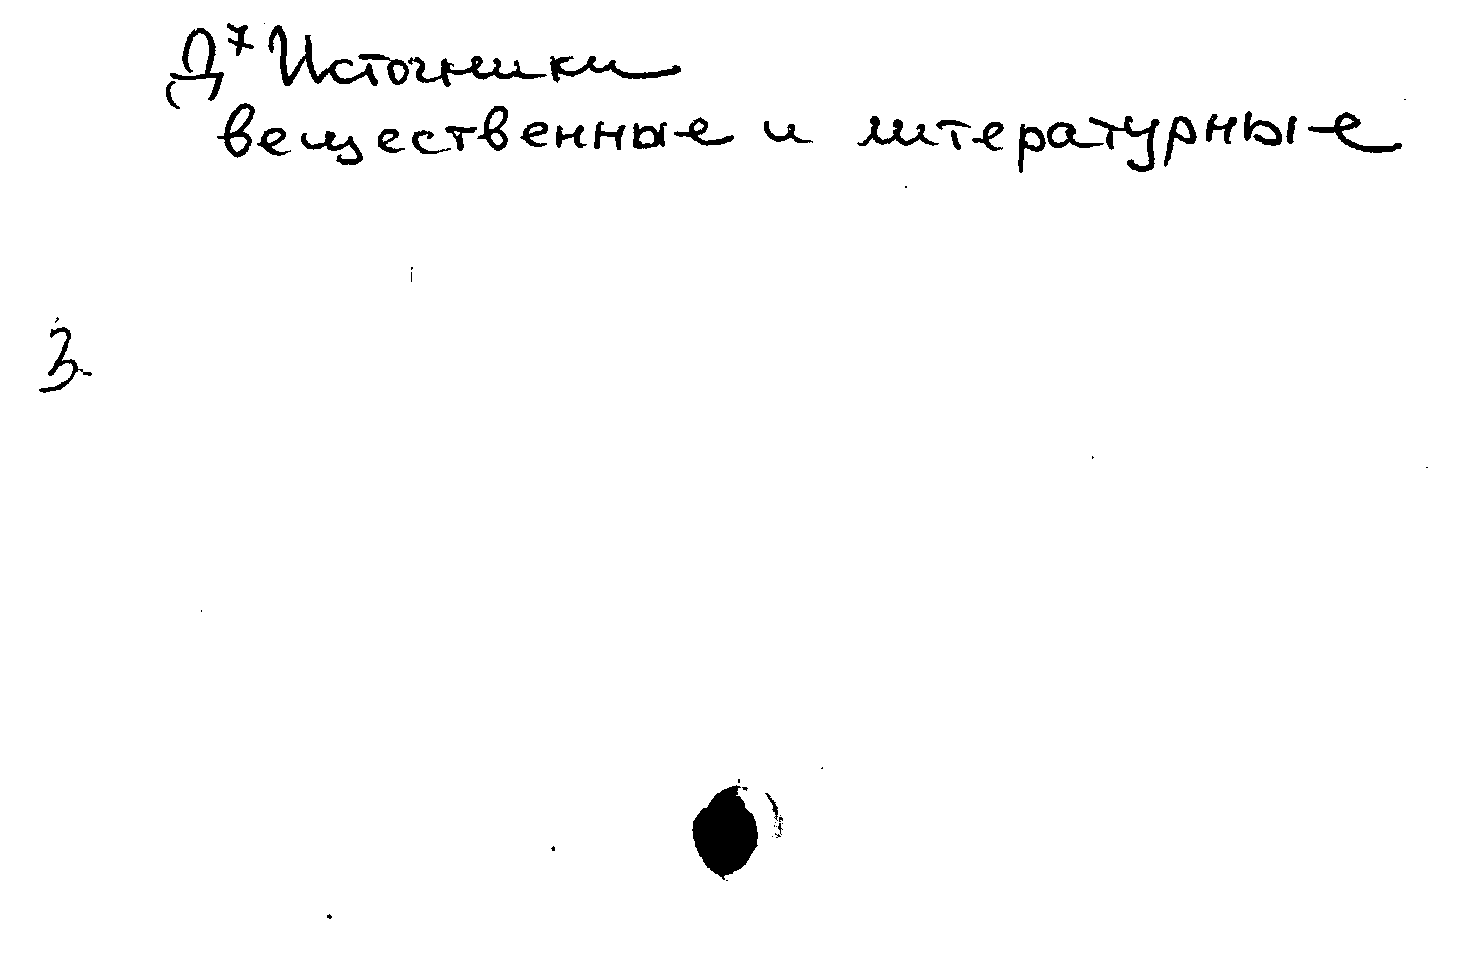 Д⁷ Источники
вещественные и литературные
3